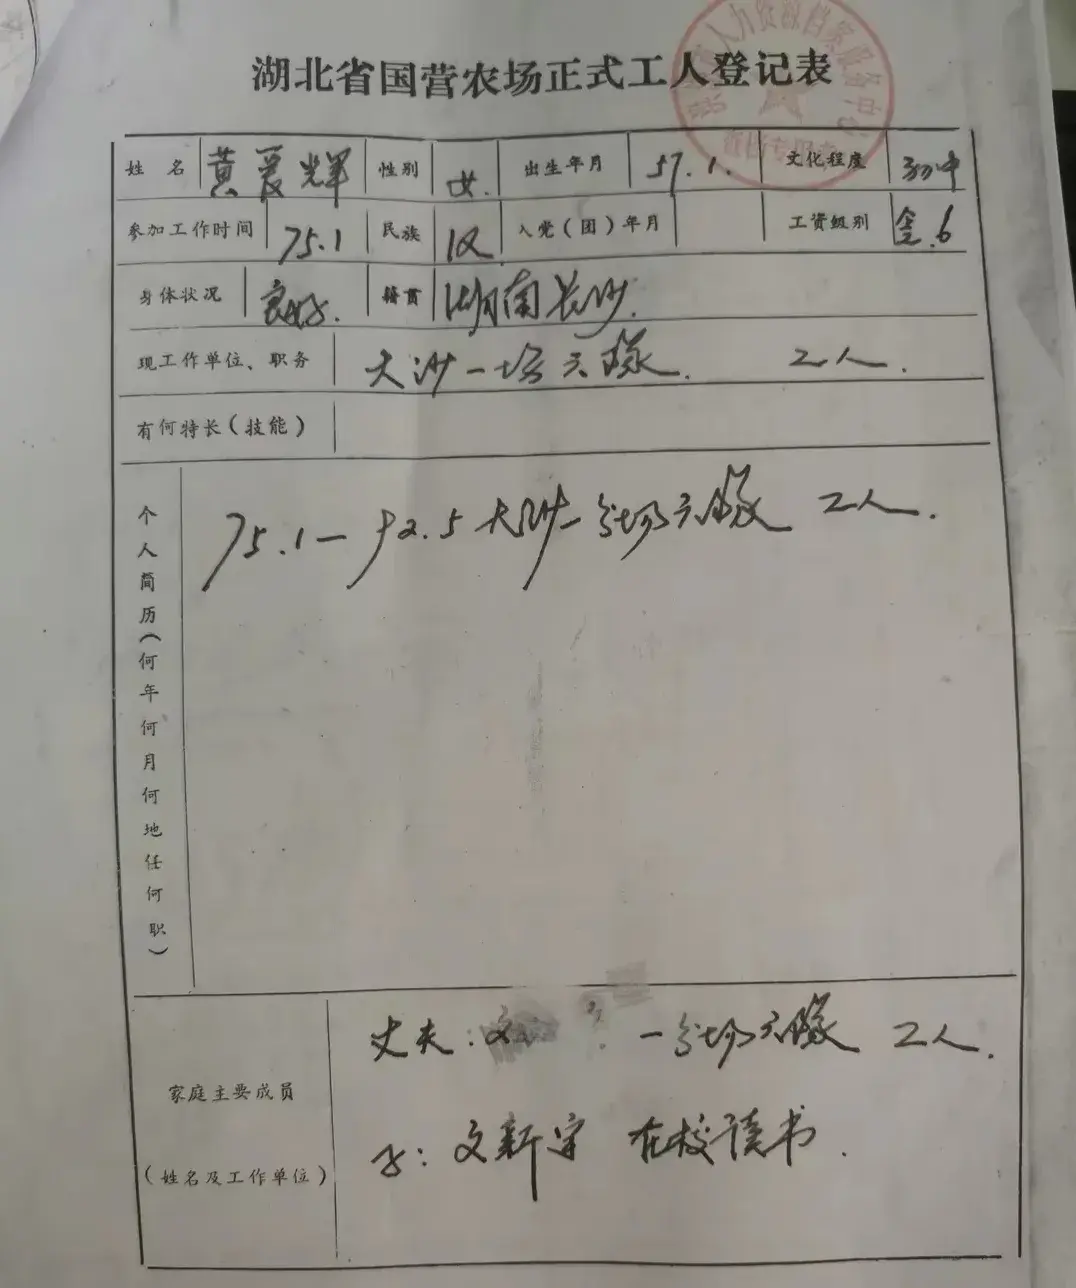 湖北省国营农场正式工人登记表
人力资源档案服务中心
姓名 黄爱辉 性别 女. 出生年月 57.1. 文化程度 初中
参加工作时间 75.1 民族 汉 入党(团)年月 工资级别 企.6
身体状况 良好. 籍贯 湖南长沙.
现工作单位、职务 大沙一场六队. 工人.
有何特长(技能)
个人简历(何年何月何地任何职)
75.1—92.5 大沙一分场六队 工人.
家庭主要成员
(姓名及工作单位)
丈夫:文 一分场六队 工人.
子:文新宇 在校读书.